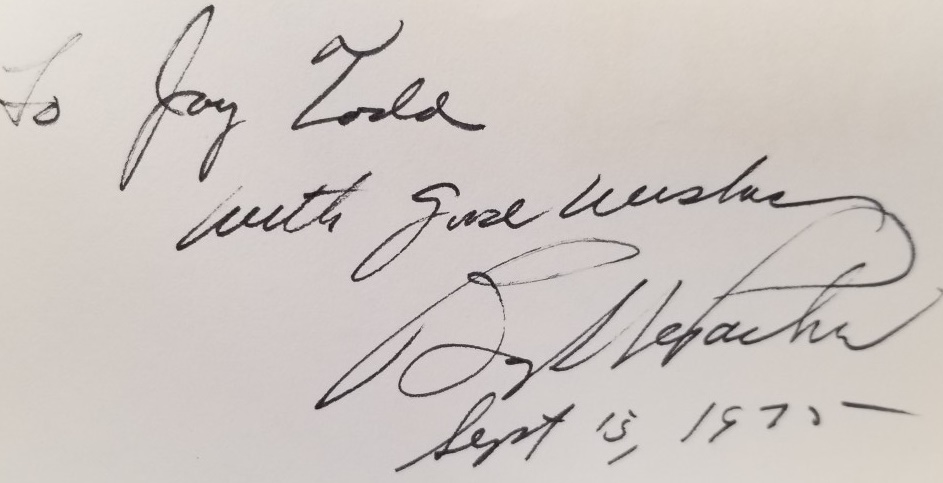 To Joy Todd
with good wishes
Sept 15, 1975